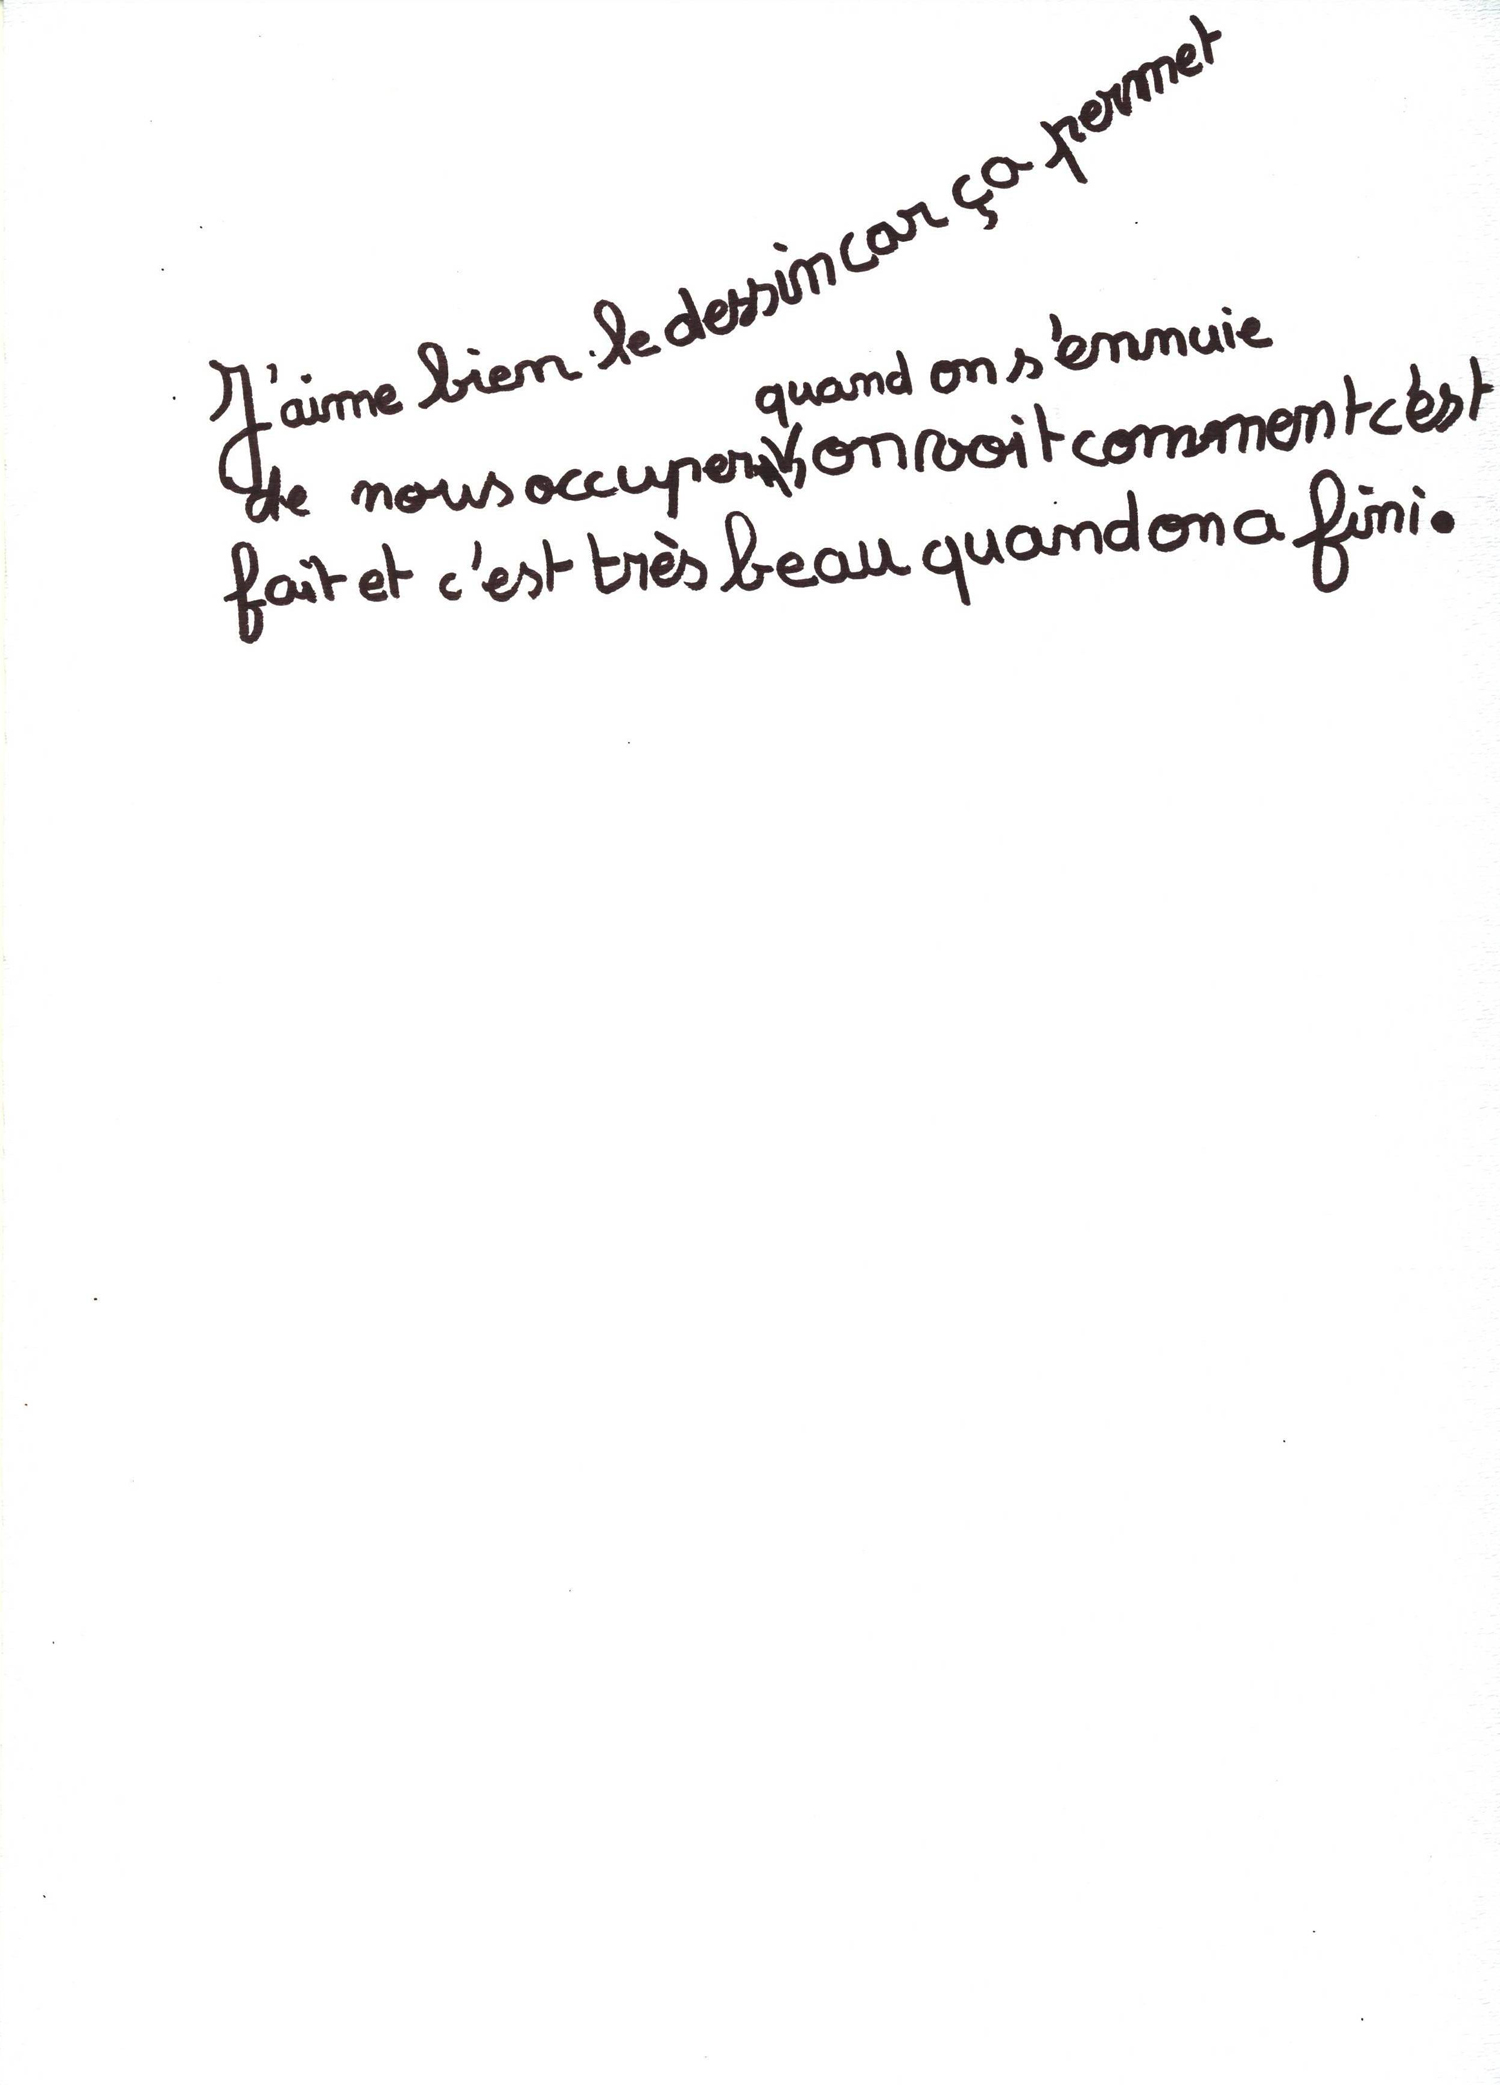 J'aime bien le dessin car ça permet
quand on s'ennuie
de nous occuper on voit comment c'est
fait et c'est très beau quand on a fini.